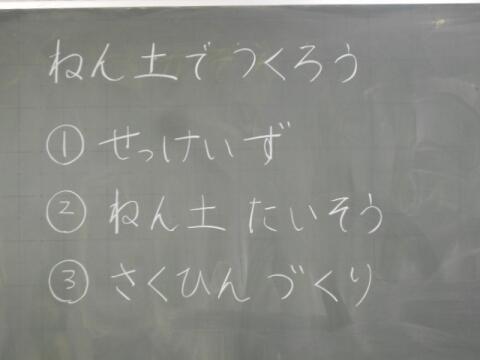 ねん土でつくろう
① せっけいず
② ねん土 たいそう
③ さくひん づくり